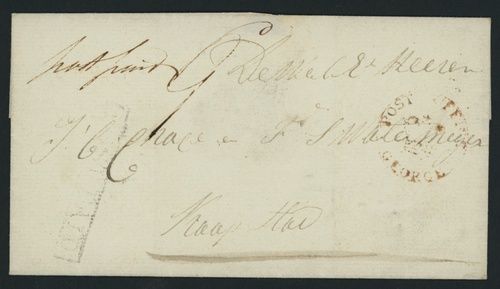 post paid 6 De Wel Ed. Heeren
J. C. Chase & F. S. Watermeyer
Kaap Stad
POST OFFICE
GEORGE